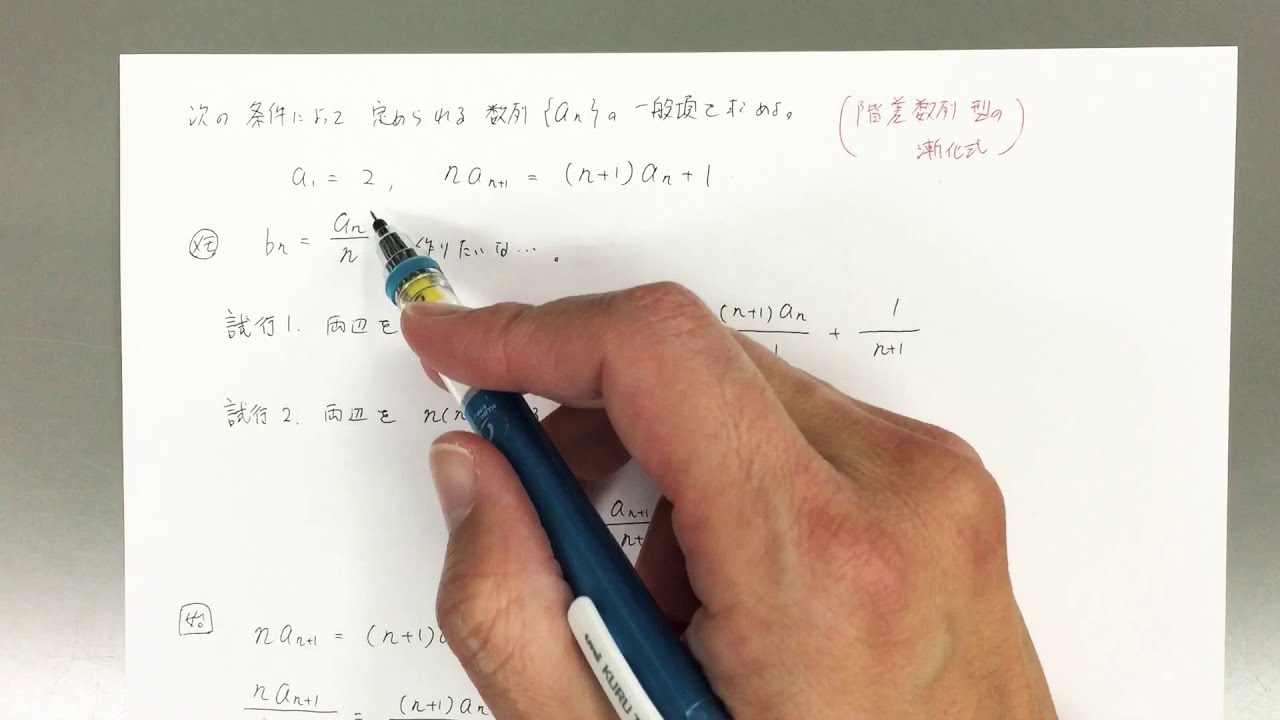 次の条件によって定められる数列{an}の一般項を求めよ。
(階差数列型の
漸化式)
a1 = 2, n an+1 = (n+1)an + 1
メモ bn = an/n 作りたいな…。
試行1. 両辺を (n+1)an + 1/(n+1)
試行2. 両辺を n(n
an+1
n an+1 = (n+1)
n an+1 = (n+1)an
uni KURU T